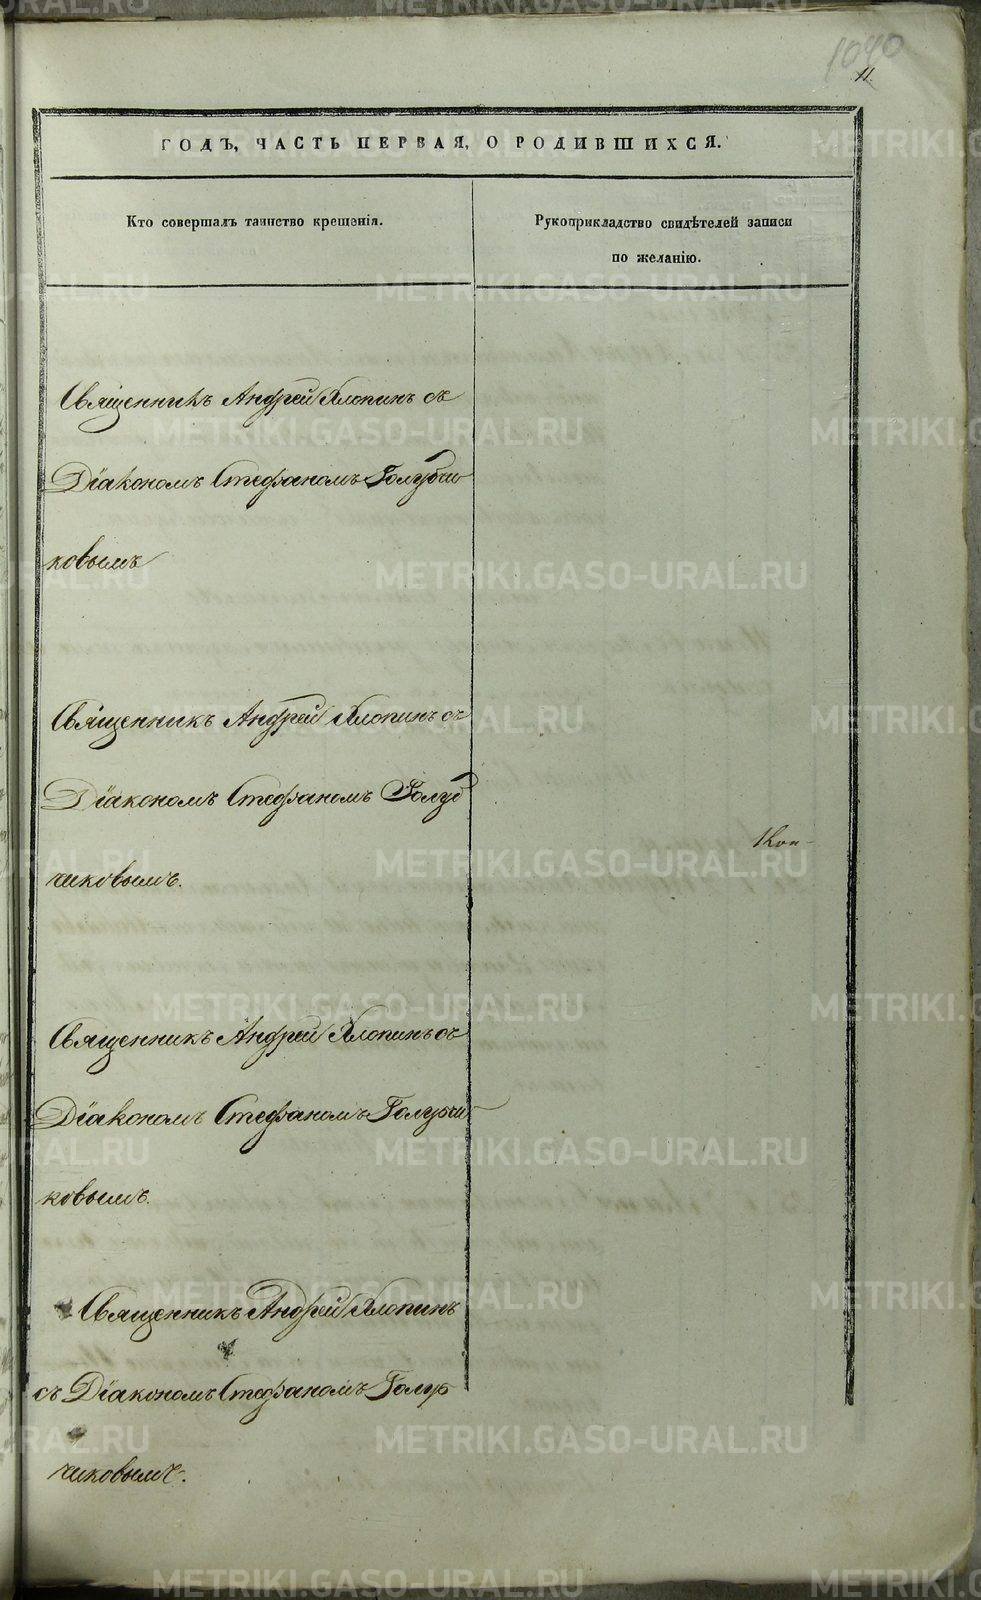 1040
11.
ГОДЪ, ЧАСТЬ ПЕРВАЯ, О РОДИВШИХСЯ.
Кто совершалъ таинство крещенія.
Рукоприкладство свидѣтелей записи
по желанію.
Священникъ Андрей Хлопинъ съ
Діакономъ Стефаномъ Голубчи
ковымъ
Священникъ Андрей Хлопинъ съ
Діакономъ Стефаномъ Голуб
чиковымъ.
Священникъ Андрей Хлопинъ съ
Діакономъ Стефаномъ Голубчи-
ковымъ.
Священникъ Андрей Хлопинъ
съ Діакономъ Стефаномъ Голуб
чиковымъ.
METRIKI.GASO-URAL.RU